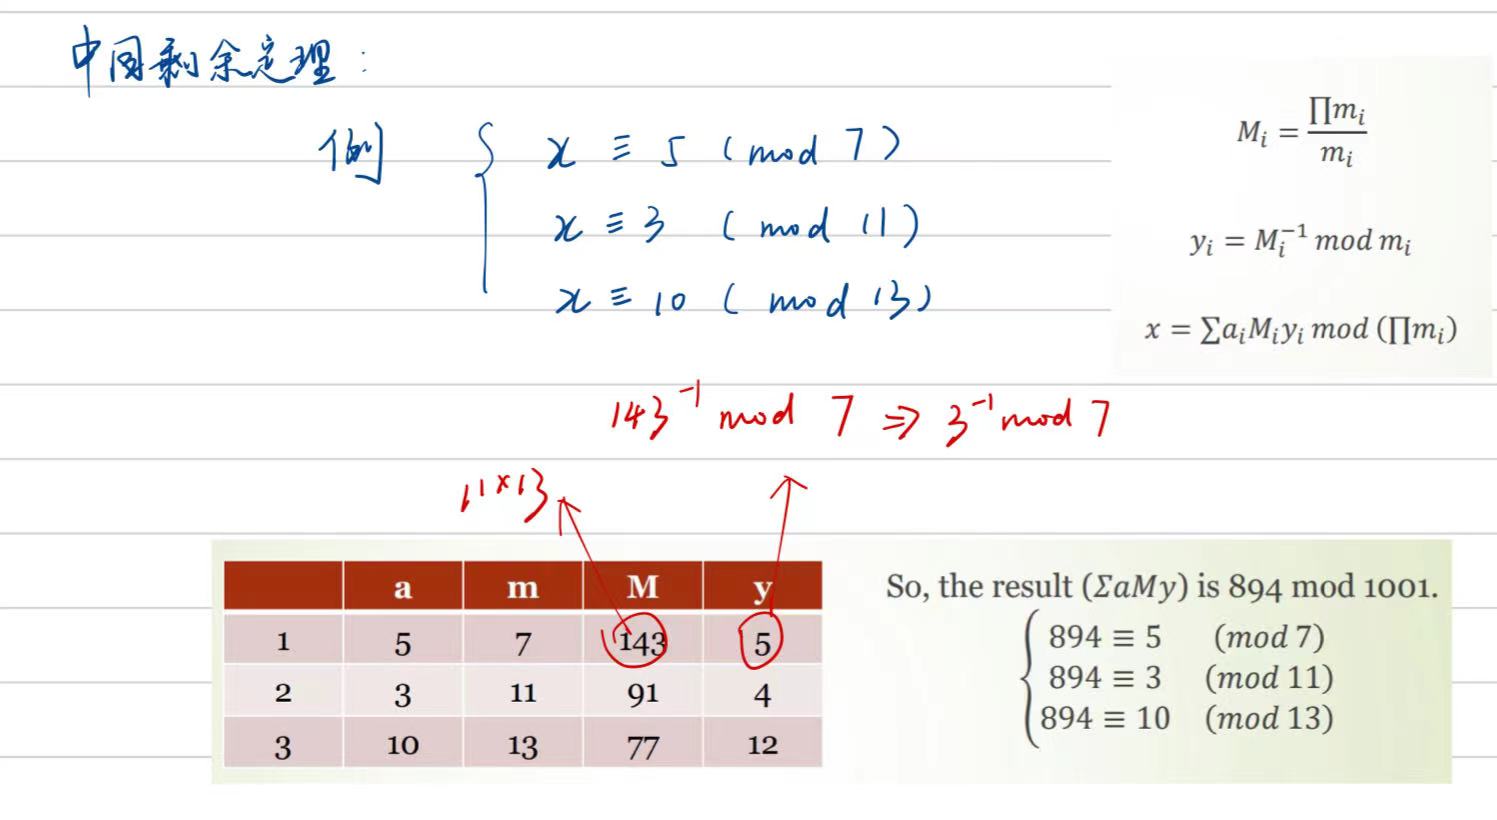 中国剩余定理：
例 { x ≡ 5 (mod 7)
x ≡ 3 (mod 11)
x ≡ 10 (mod 13)
M_i = ∏m_i / m_i
y_i = M_i^{-1} mod m_i
x = ∑a_iM_iy_i mod (∏m_i)
143^{-1} mod 7 => 3^{-1} mod 7
11×13
a m M y
1 5 7 143 5
2 3 11 91 4
3 10 13 77 12
So, the result (ΣaMy) is 894 mod 1001.
{ 894 ≡ 5 (mod 7)
894 ≡ 3 (mod 11)
894 ≡ 10 (mod 13)